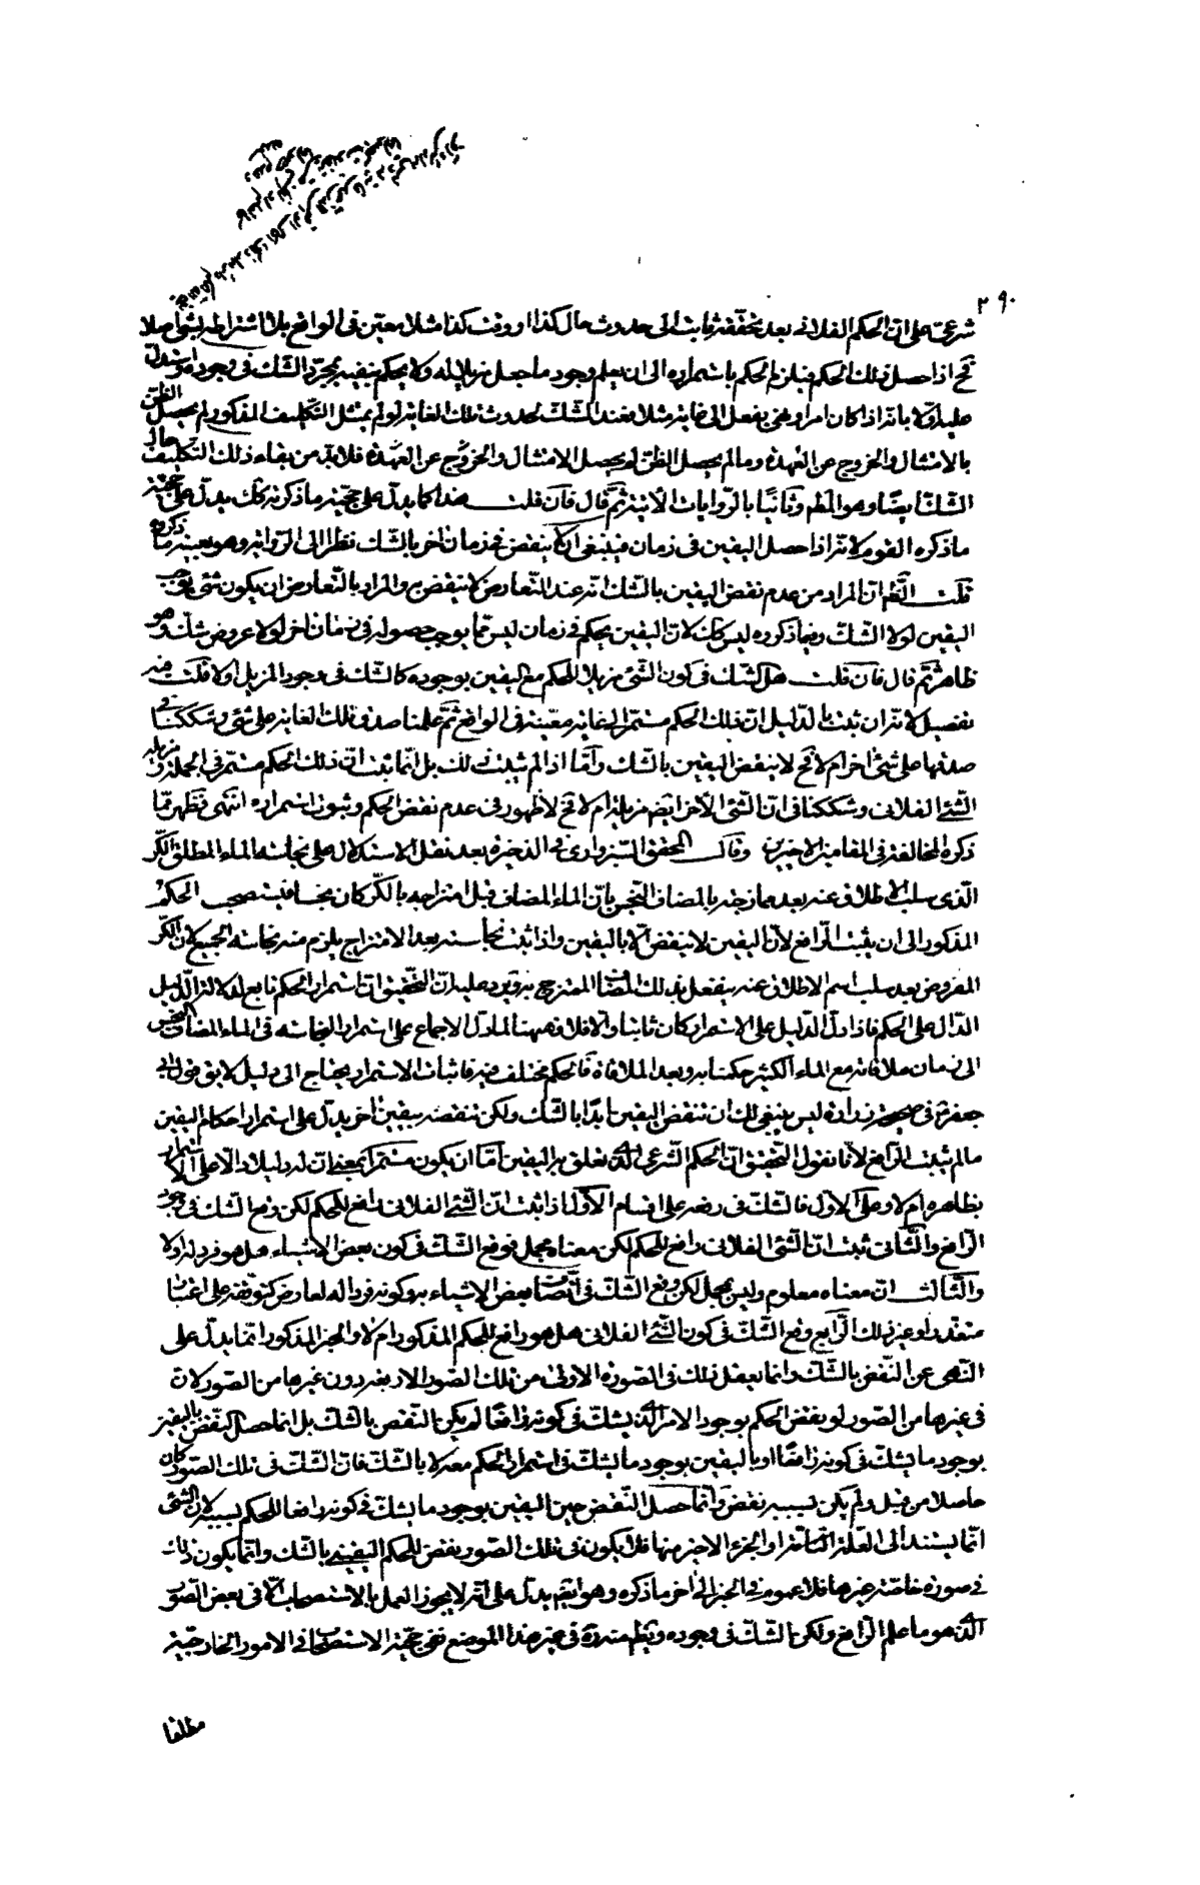 ۲۹۰
شرعی علی ان الحکم الفلانی بعد تحققه ثابت الی حدوث حال کذا او وقت کذا مثلا معین فی الواقع بلا اشتراطه بشیء اصلا
فح اذا حصل ذلک الحکم فیلزم الحکم باستمراره الی ان یعلم وجود ما جعل مزیلا له ولا یحکم بنفیه بمجرد الشک فی وجوده واستدل
علیه اولا بانه اذا کان امر او نهی بفعل الی غایة مثلا فعند الشک بحدوث تلک الغایة لو لم یمتثل التکلیف المذکور لم یحصل الظن
بالامتثال والخروج عن العهدة وما لم یحصل الظن لم یحصل الامتثال والخروج عن العهدة فلا بد من بقاء ذلک التکلیف حال
الشک ایضا وهو المط وثانیا بالروایات الآتیة ثم قال فان قلت هذا کما یدل علی حجیة ما ذکرته کک یدل علی حجیة
ما ذکره القوم لانه اذا حصل الیقین فی زمان فینبغی ان لا ینقض فی زمان اخر بالشک نظرا الی الروایة وهو بعینه ما ذکروه
قلت الظ ان المراد من عدم نقض الیقین بالشک انه عند التعارض لا ینقض به والمراد بالتعارض ان یکون شیء یوجب
الیقین لولا الشک وفیما ذکروه لیس کک لان الیقین بحکم فی زمان لیس مما یوجب حصوله فی زمان اخر لولا عروض شک وهو
ظاهر ثم قال فان قلت هل الشک فی کون الشیء مزیلا للحکم مع الیقین بوجوده کالشک فی وجود المزیل او لا قلت فیه
تفصیل لانه ان ثبت بالدلیل ان ذلک الحکم مستمر الی غایة معینة فی الواقع ثم علمنا صدق تلک الغایة علی شیء وشککنا فی
صدقها علی شیء اخر ام لا فح لا ینقض الیقین بالشک واما اذا لم یثبت ذلک بل انما ثبت ان ذلک الحکم مستمر فی الجملة ومزیله
الشیء الفلانی وشککنا فی ان الشیء الاخر ایضا مزیله ام لا فح لا ظهور فی عدم نقض الحکم وثبوت استمراره انتهی فظهر مما
ذکره المخالفة فی المقامین الاخیرین وقال المحقق السبزواری فی الذخیرة بعد نقل الاستدلال علی نجاسة الماء المطلق الکر
الذی سلب الاطلاق عنه بعد ممازجته بالمضاف النجس بان الماء المضاف قبل امتزاجه بالکر کان نجسا فیستصحب الحکم
المذکور الی ان یثبت الرافع لان الیقین لا ینقض الا بالیقین واذا ثبت نجاسته بعد الامتزاج یلزم منه نجاسة الجمیع لان الکر
المفروض بعد سلب اسم الاطلاق عنه ینفعل بذلک المضاف الممتزج به ویرد علیه ان التحقیق ان استمرار الحکم تابع لدلالة الدلیل
الدال علی الحکم فاذا دل الدلیل علی الاستمرار کان ثابتا والا فلا فههنا لما دل الاجماع علی استمرار النجاسة فی الماء المضاف النجس
الی زمان ملاقاته مع الماء الکثیر حکمنا به وبعد الملاقاة فالحکم مختلف فیه فاثبات الاستمرار یحتاج الی دلیل لا یق قول ابی
جعفر فی صحیحة زرارة لیس ینبغی لک ان تنقض الیقین ابدا بالشک ولکن تنقضه بیقین اخر یدل علی استمرار احکام الیقین
ما لم یثبت الرافع لانا نقول التحقیق ان الحکم الشرعی الذی تعلق به الیقین اما ان یکون مستمرا بمعنی ان له دلیلا دالا علی الاستمرار
بظاهره ام لا وعلی الاول فالشک فی رفعه علی اقسام الاول اذا ثبت ان الشیء الفلانی رافع للحکم لکن وقع الشک فی وجود
الرافع والثانی ثبت ان الشیء الفلانی رافع للحکم لکن معناه مجمل فوقع الشک فی کون بعض الاشیاء هل هو فرد له او لا
والثالث ان معناه معلوم ولیس بمجمل لکن وقع الشک فی اتصاف بعض الاشیاء به وکونه فردا له لعارض کتوقفه علی اعتبار
متعذر او غیر ذلک الرابع وقع الشک فی کون الشیء الفلانی هل هو رافع للحکم المذکور ام لا والخبر المذکور انما یدل علی
النهی عن النقض بالشک وانما یعقل ذلک فی الصورة الاولی من تلک الصور الاربعة دون غیرها من الصور لان
فی غیرها من الصور لو نقض الحکم بوجود الامر الذی یشک فی کونه رافعا لم یکن النقض بالشک بل انما حصل النقض بالیقین
بوجود ما یشک فی کونه رافعا او بالیقین بوجود ما یشک فی استمرار الحکم معه لا بالشک فان الشک فی تلک الصور کان
حاصلا من قبل ولم یکن بسببه نقض وانما حصل النقض حین الیقین بوجود ما یشک فی کونه رافعا للحکم بسببه لان الشیء
انما یستند الی العلة التامة او الجزء الاخیر منها فلا یکون فی تلک الصور نقض للحکم الیقینی بالشک وانما یکون ذلک
فی صورة خاصة غیرها فلا عموم فی الخبر الی اخر ما ذکره وهو ایضا یدل علی انه لا یجوز العمل بالاستصحاب الا فی بعض الصور
الذی هو ما علم الرافع ولکن الشک فی وجوده ویظهر منه ره فی غیر هذا الموضع نفی حجیة الاستصحاب فی الامور الخارجیة
مطلقا